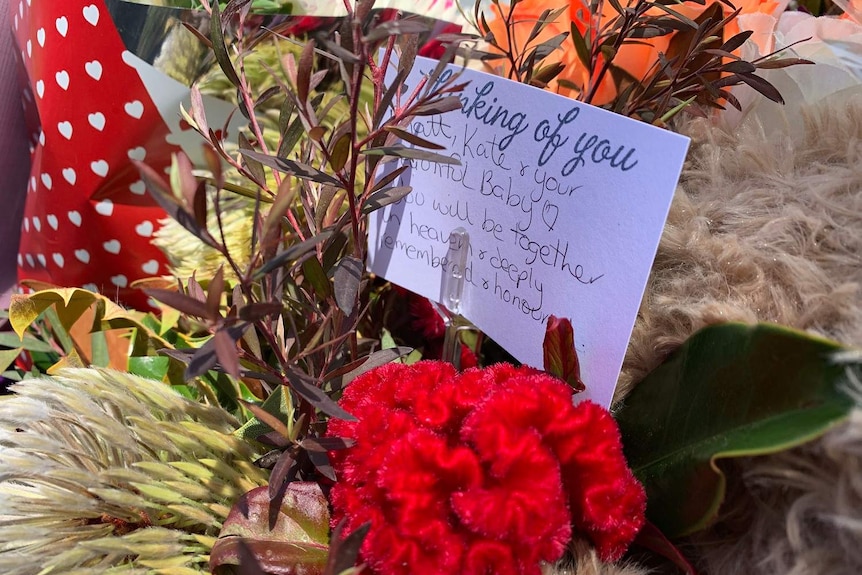 thinking of you
Matt, Kate & your
beautiful Baby ♡
You will be together
in heaven & deeply
remembered & honoured